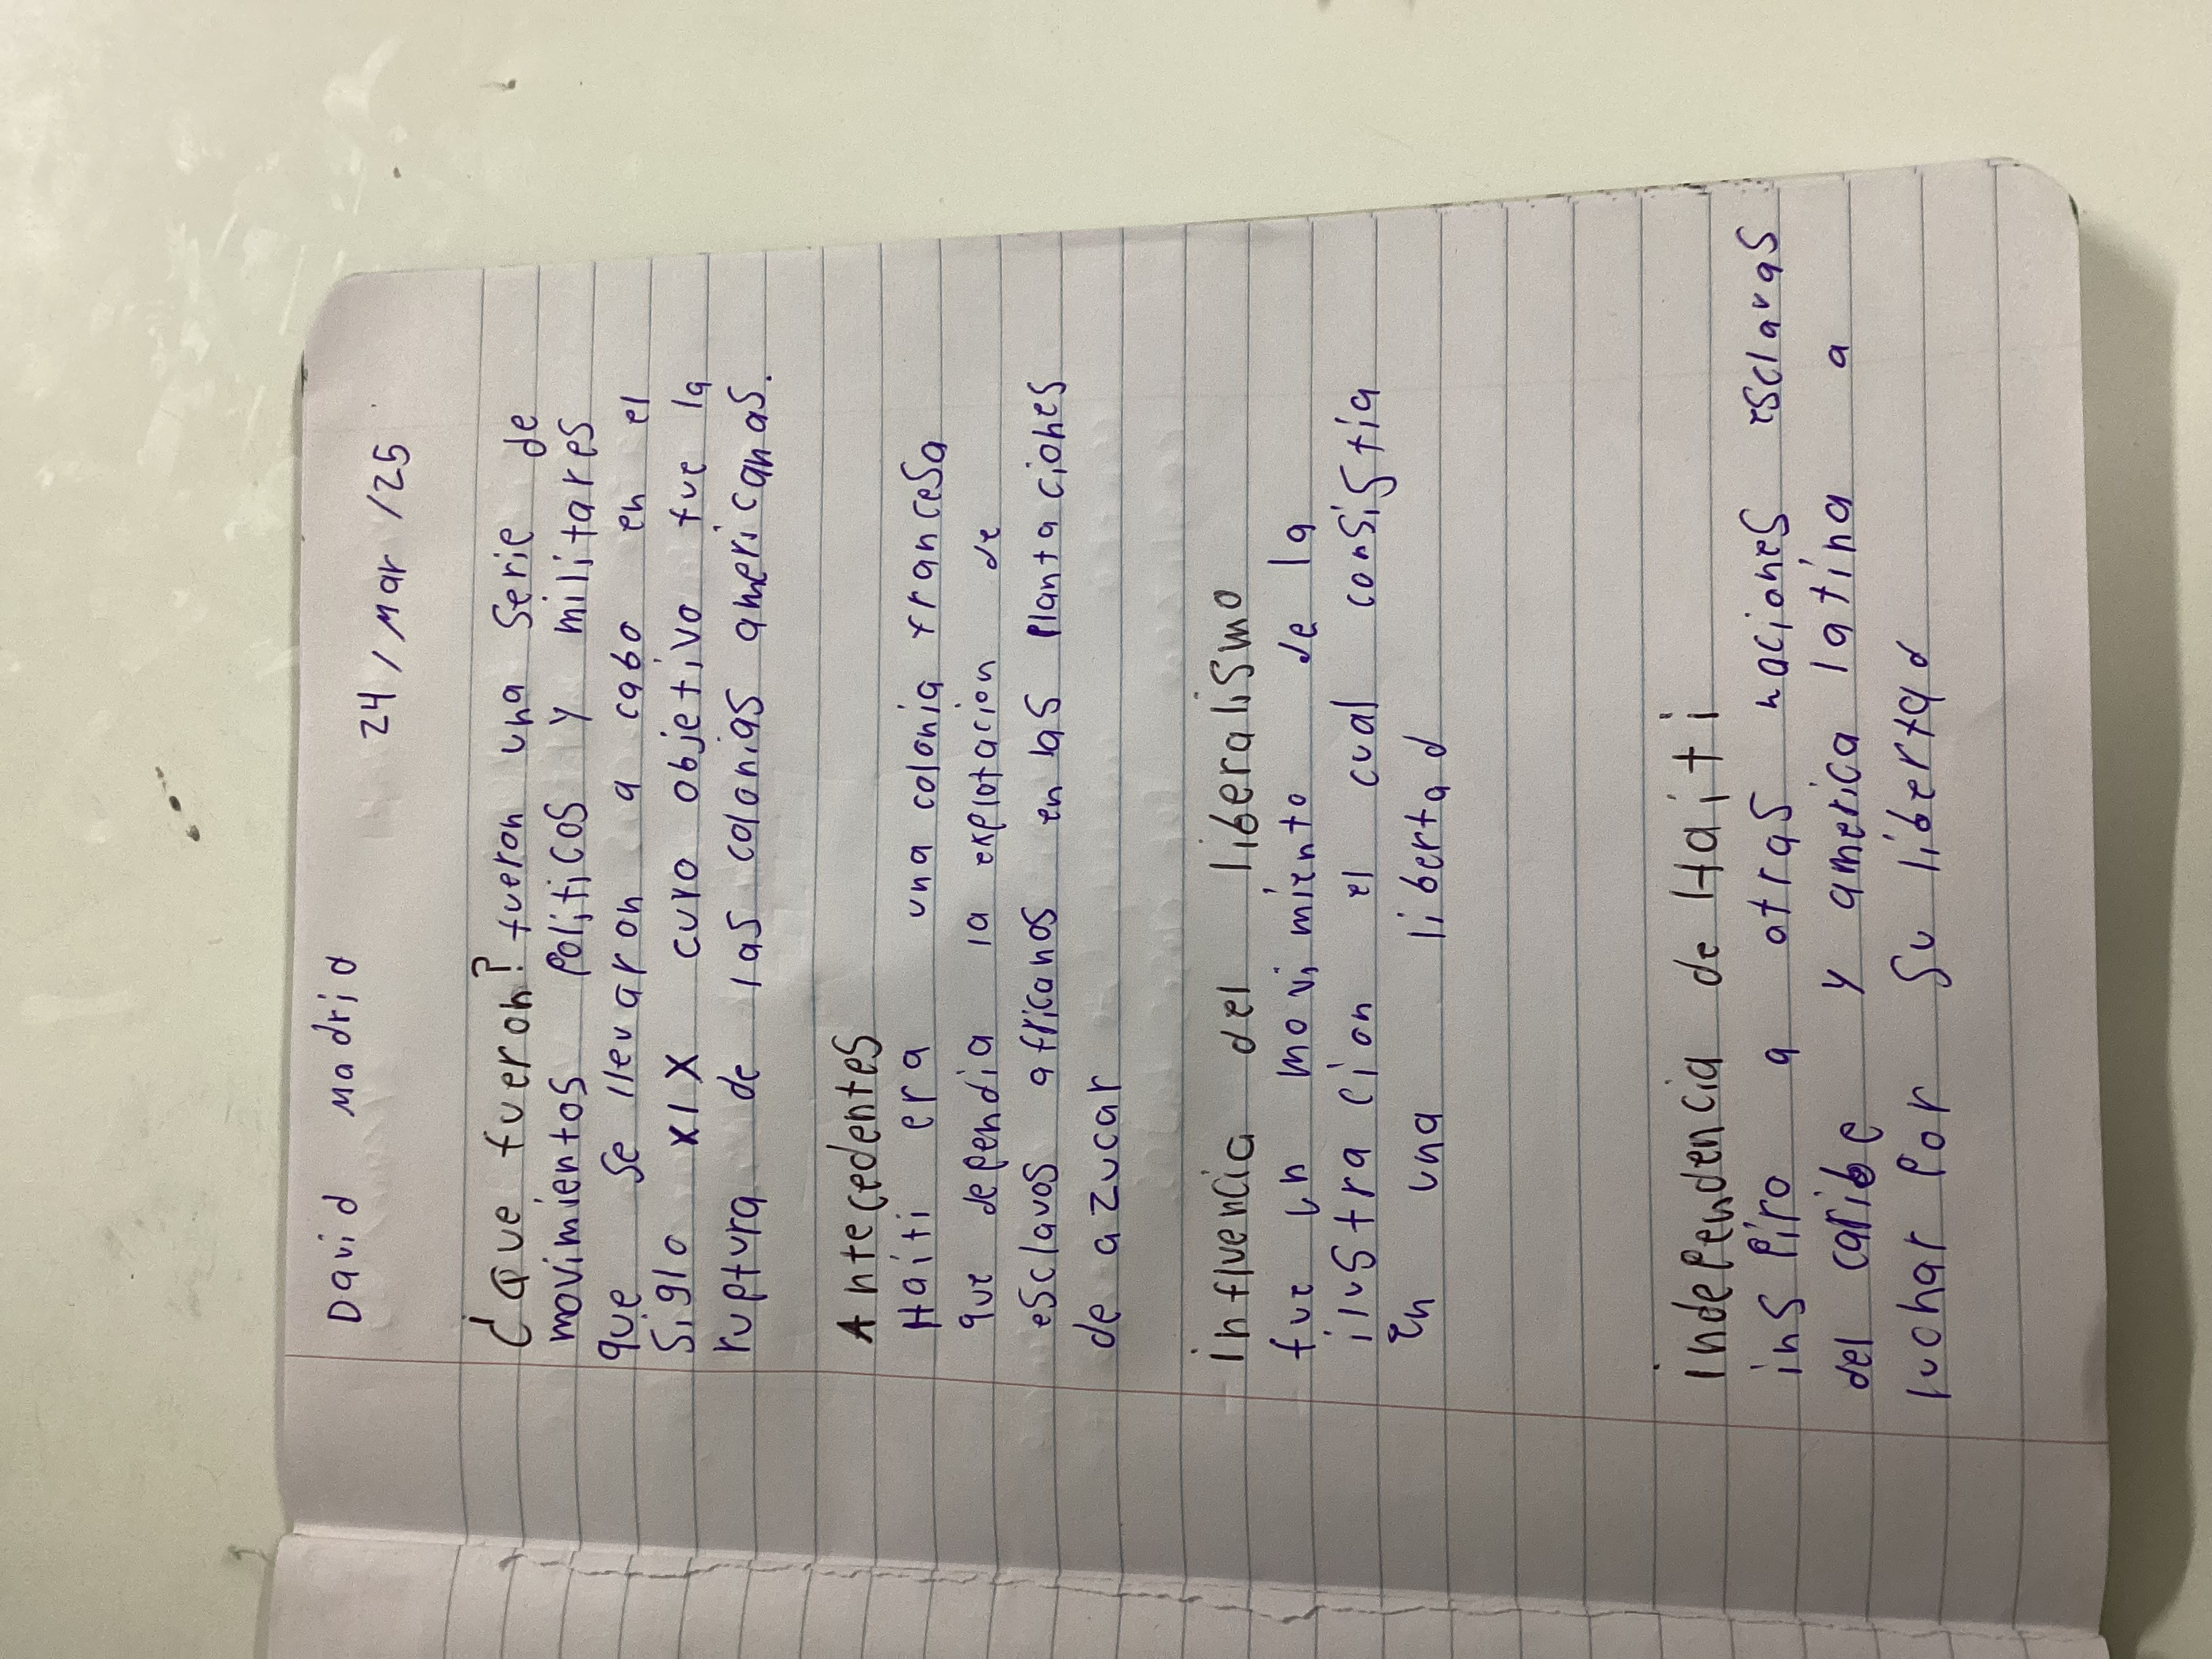 David Madrid
24/Mar/25
¿Que fueron? fueron una serie de
movimientos politicos y militares
que se llevaron a cabo en el
siglo XIX cuyo objetivo fue la
ruptura de las colonias americanas.
Antecedentes
Haiti era una colonia francesa
que dependia la explotacion de
esclavos africanos en las plantaciones
de azucar
influencia del liberalismo
fue un movimiento de la
ilustracion el cual consistia
en una libertad
independencia de Haiti
inspiro a otras naciones esclavas
del caribe y america latina a
luchar por su libertad